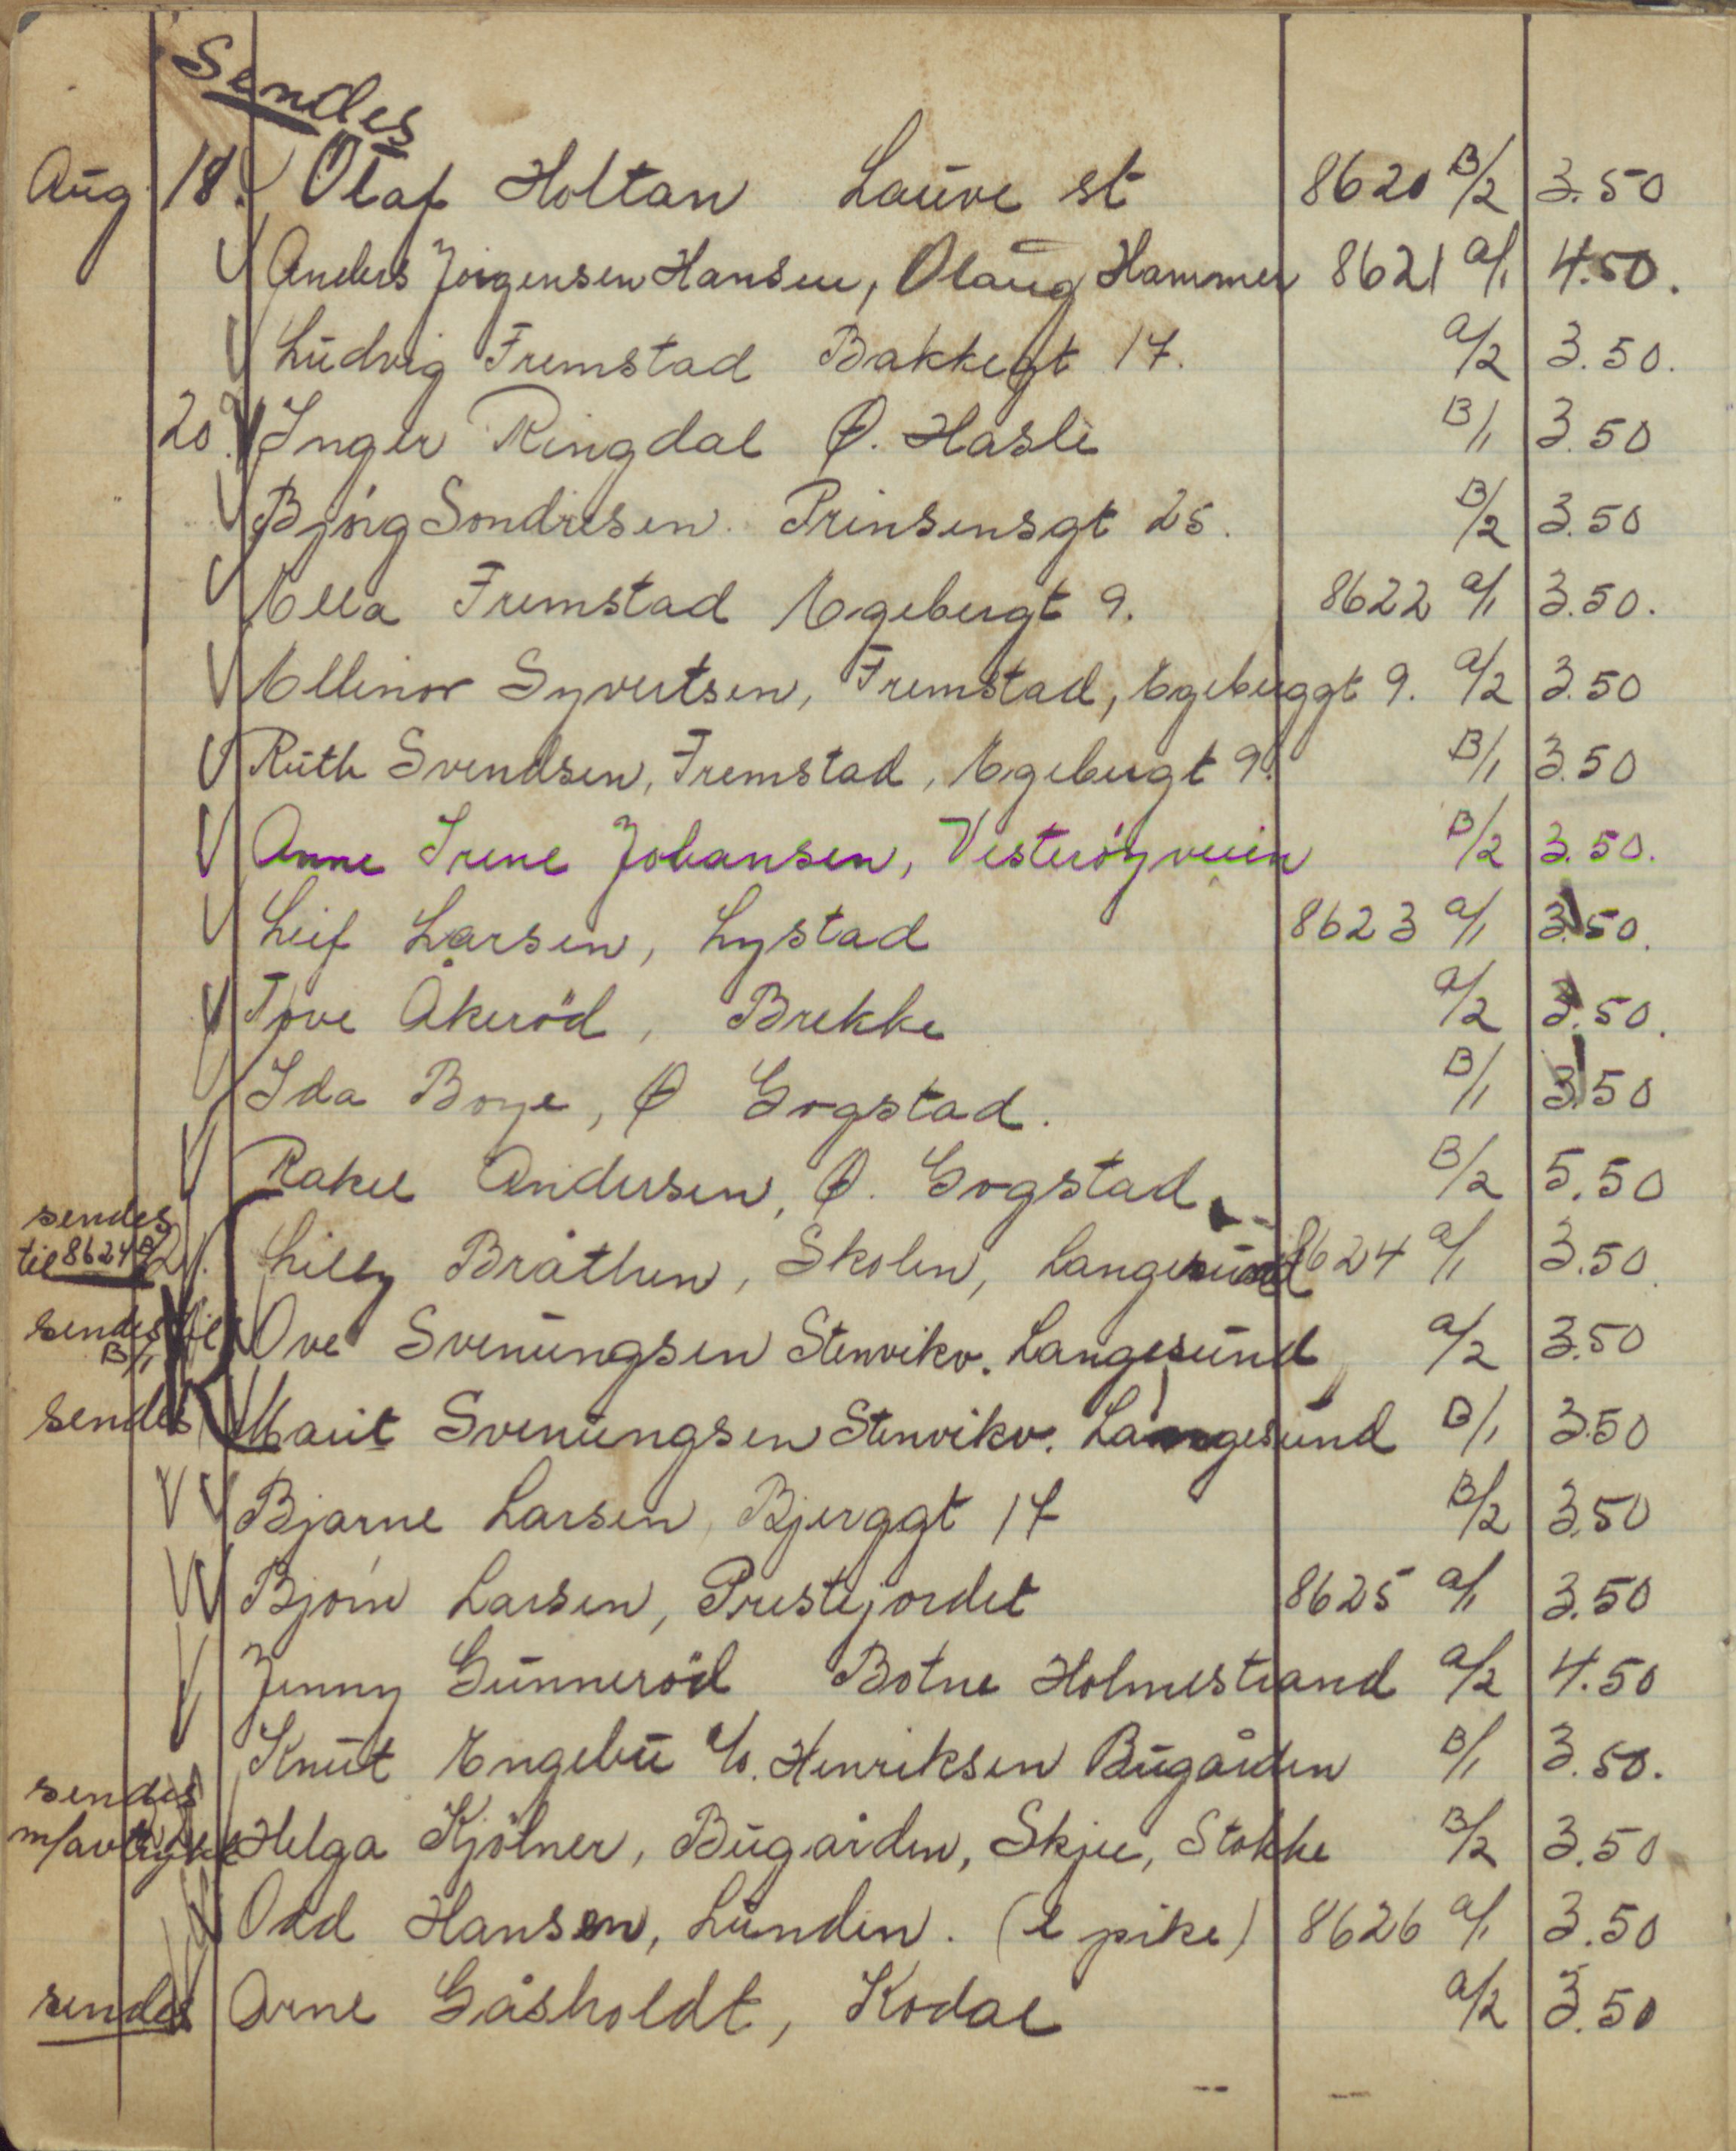 Sendes
Aug 18. Olaf Holtan Lauve st 8620 B/2 3.50
Anders Jörgensen Hansen, Olaug Hammer 8621 a/1 4.50.
Ludvig Fremstad Bakkegt 17. a/2 3.50.
20. Inger Ringdal Ø. Hasle B/1 3.50
Bjórg Sondresen. Prinsensgt 25. B/2 3.50
Ella Fremstad Egebergt 9. 8622 a/1 3.50.
Ellinor Syvertsen, Fremstad, Egeberggt 9. a/2 3.50
Ruth Svendsen, Fremstad, Egebergt 9. B/1 3.50
Anne Irene Johansen, Vesteröyveien B/2 3.50.
Leif Larsen, Lystad 8623 a/1 3.50.
Tove Åkeröd, Brekke a/2 3.50.
Ida Boye, Ø Gogstad. B/1 3.50
Rakel Andersen, Ø. Gogstad. B/2 5.50
sendes
til 8624 B/2 21. Lilly Bråthen, Skolen, Langesund 8624 a/1 3.50.
sendes til
B/1 Ove Svenungsen Stenvikv. Langesund a/2 3.50
sendes Marit Svenungsen Stenvikv. Langesund B/1 3.50
Bjarne Larsen, Bjerggt 17 B/2 3.50
Bjórn Larsen, Prestejordet 8625 a/1 3.50
Jenny Gunneröd Botne Holmestrand a/2 4.50
Knut Engebu c/o. Henriksen Bugården B/1 3.50.
sendes
m/avtrykk Helga Kjölner, Bugården, Skjee, Stokke B/2 3.50
Odd Hansen, Lunden. (e pike) 8626 a/1 3.50
sendes Arne Gåsholdt, Kodal a/2 3.50